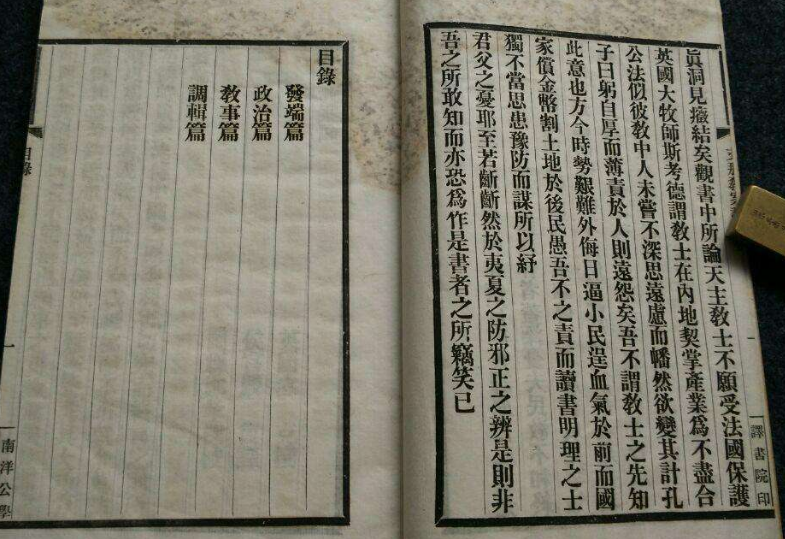 眞洞見癥結矣觀書中所論天主敎士不願受法國保護
英國大牧師斯考德謂敎士在內地契掌產業爲不盡合
公法似彼敎中人未嘗不深思遠慮而幡然欲變其計孔
子曰躬自厚而薄責於人則遠怨矣吾不謂敎士之先知
此意也方今時勢艱難外侮日逼小民逞血氣於前而國
家償金幣割土地於後民愚吾不之責而讀書明理之士
獨不當思患豫防而謀所以紓
君父之憂耶至若齗齗然於夷夏之防邪正之辨是則非
吾之所敢知而亦恐爲作是書者之所竊笑已
譯書院印
目錄
發端篇
政治篇
敎事篇
調輯篇
目錄
一
南洋公學